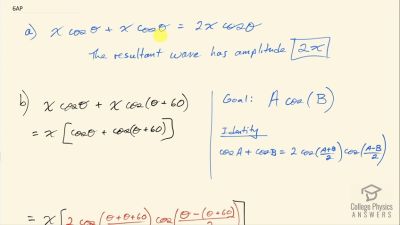 6AP
a) x cosθ + x cosθ = 2x cosθ
The resultant wave has amplitude 2x
b) x cosθ + x cos(θ+60)
= x [cosθ + cos(θ+60)]
Goal: A cos(B)
Identity
cosA + cosB = 2 cos(A+B/2) cos(A-B/2)
= x [2 cos(θ+θ+60/2) cos(θ-(θ+60)/2)
College Physics
ANSWERS